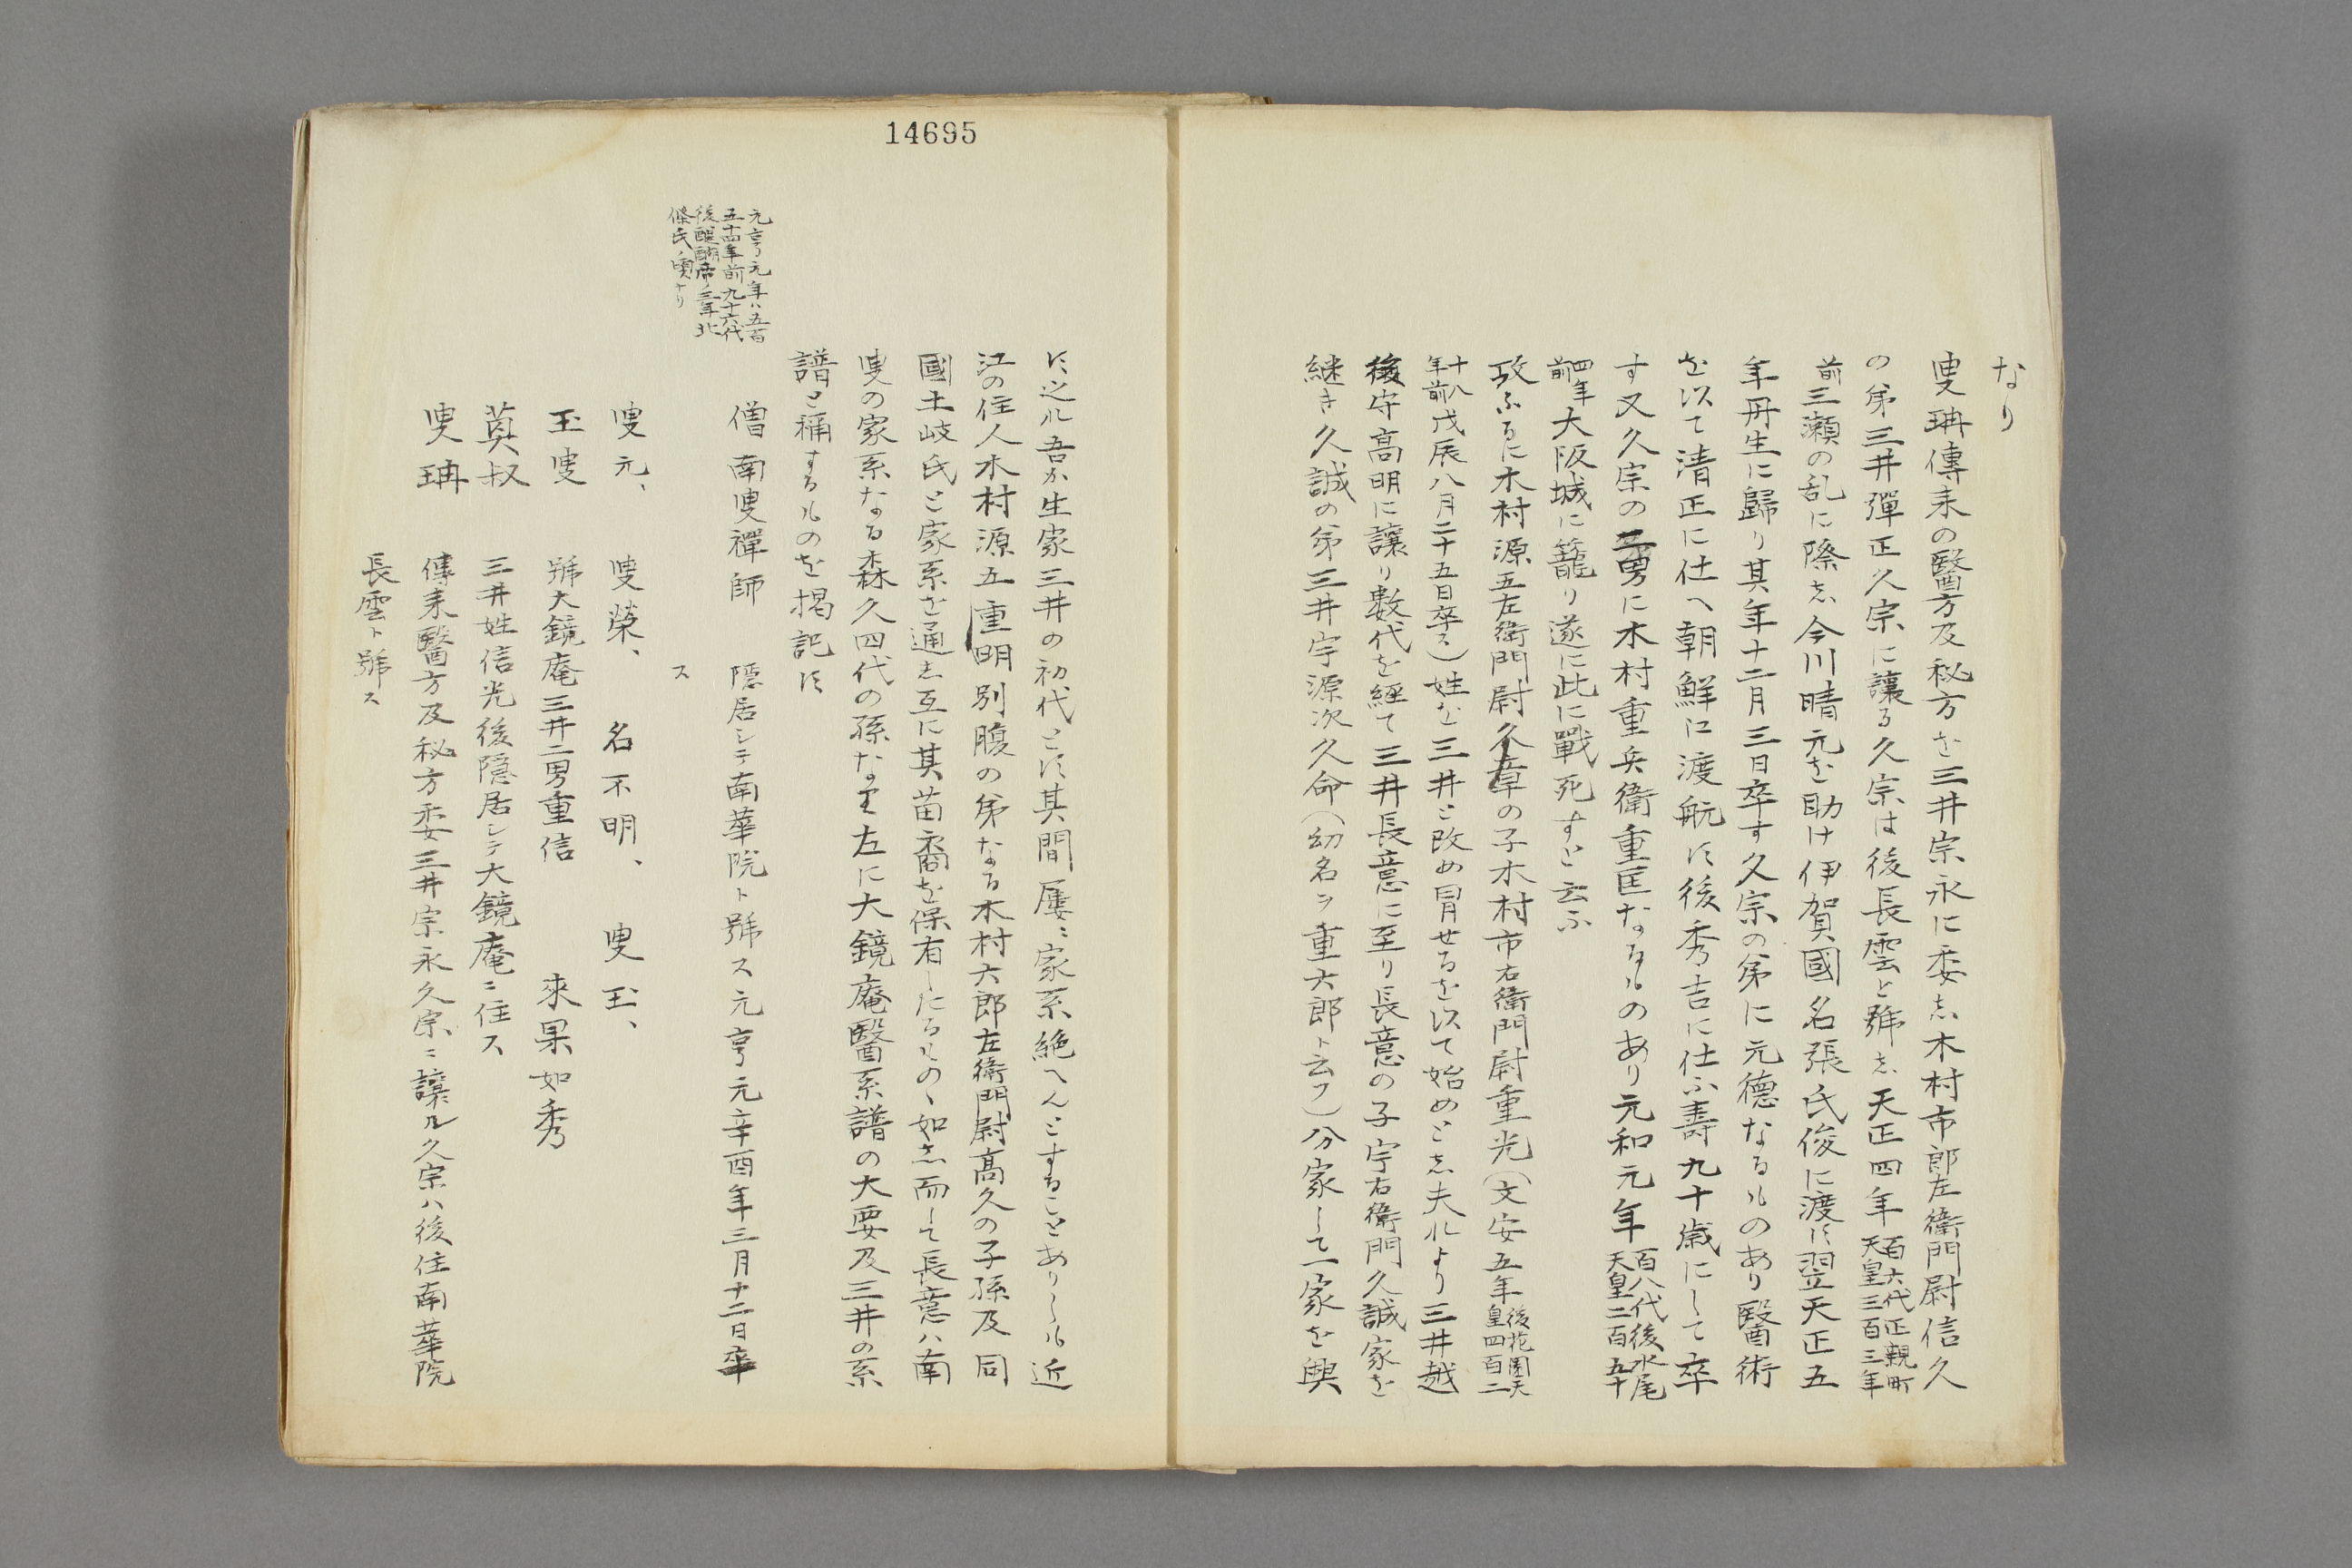 なり
叟珃傳来の醫方及秘方を三井宗永に委し木村市郎左衛門尉信久
の弟三井彈正久宗に讓る久宗は後長雲と號し天正四年百六代正親町天皇三百三年
前三瀬の乱に際し今川晴元を助け伊賀國名張氏俊に渡す翌天正五
年丹生に歸り其年十二月三日卒す久宗の弟に元德なるものあり醫術
を以て清正に仕へ朝鮮に渡航す後秀吉に仕ふ壽九十歳にして卒
す又久宗の二男に木村重兵衛重匡なるものあり元和元年百八代後水尾天皇二百五十
四年前大阪城に籠り遂に此に戰死すと云ふ
攷ふるに木村源五左衛門尉久章の子木村市右衛門尉重光(文安五年後花園天皇四百二
十八年前戊辰八月二十五日卒る)姓を三井と改め冐せるを以て始めとし夫れより三井越
後守高明に讓り数代を経て三井長意に至り長意の子宇右衛門久誠家を
継き久誠の弟三井宇源次久命(幼名ヲ重六郎ト云フ)分家して一家を興
14695
す之れ吾か生家三井の初代とす其間屡〻家系絶へんとすることありしも近
江の住人木村源五重明別腹の弟なる木村六郎左衛門尉高久の子孫及同
國土岐氏と家系を通し互に其苗裔を保有したるものゝ如し而して長意ハ南
叟の家系なる森久四代の孫なり左に大鏡庵醫系譜の大要及三井の系
譜と稱するものを掲記す
元亨元年ハ五百
五十四年前九十六代
後醍醐帝ノ三年北
條氏ノ頃ナリ
僧南叟禪師　隱居シテ南華院ト號ス元亨元辛酉年三月十二日卒
ス
叟元、　叟榮、　名不明、　叟玉、
玉叟　號大鏡庵三井二男重信　來果如秀
莫叔　三井姓信光後隱居シテ大鏡庵ニ住ス
叟珃　傳来醫方及秘方委三井宗永久宗ニ讓ル久宗ハ後住南華院
長雲ト號ス